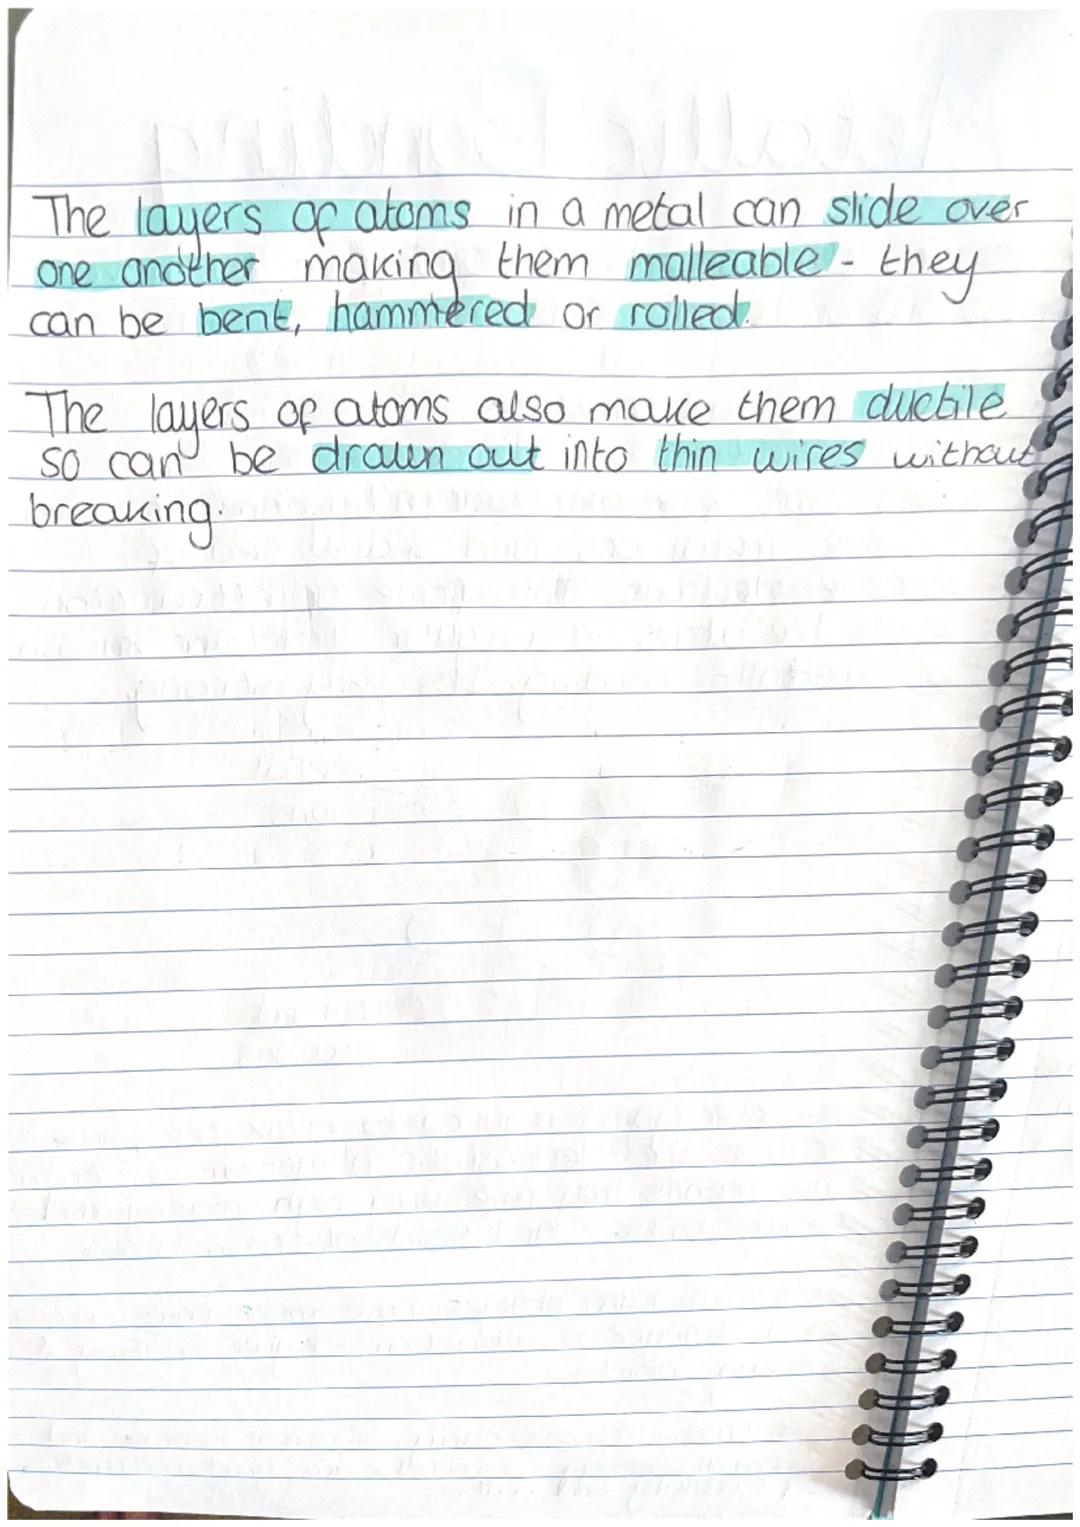 The layers of atoms in a metal can slide over
one another making them malleable - they
can be bent, hammered or rolled.
The layers of atoms also make them ductile
so can be drawn out into thin wires without
breaking.